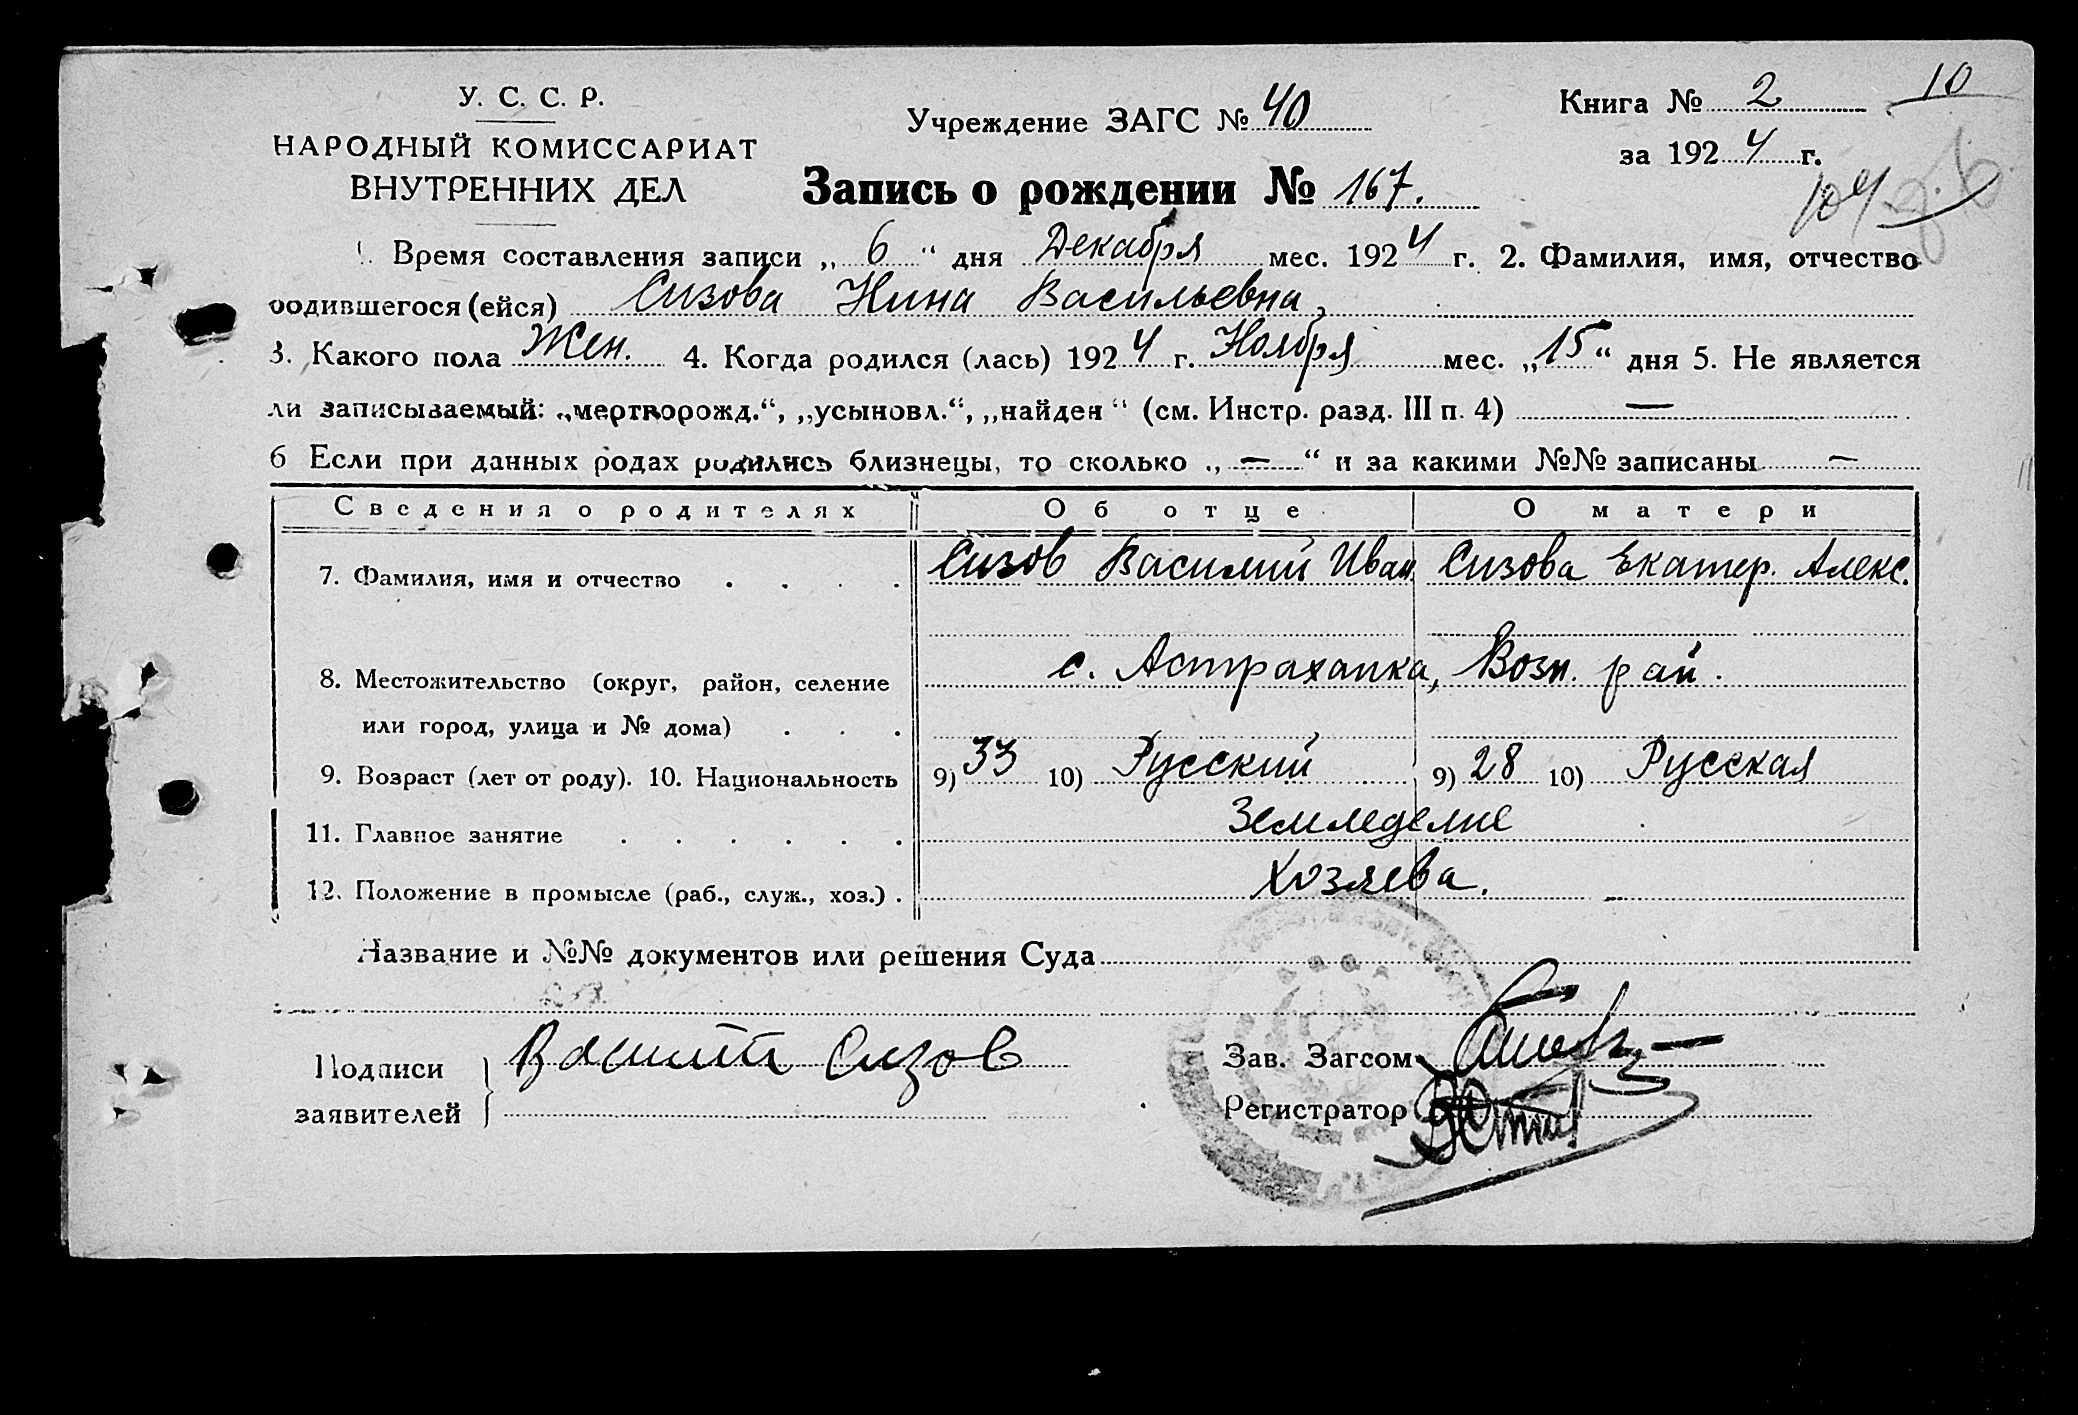 У. С. С. Р.
НАРОДНЫЙ КОМИССАРИАТ
ВНУТРЕННИХ ДЕЛ
Учреждение ЗАГС № 40
Книга № 2 10
за 1924 г.
104
Запись о рождении № 167.
1. Время составления записи „ 6 “ дня Декабря мес. 1924 г. 2. Фамилия, имя, отчество
родившегося (ейся) Сизова Нина Васильевна,
3. Какого пола Жен. 4. Когда родился (лась) 1924 г. Ноября мес. „15“ дня 5. Не является
ли записываемый: „мертворожд.“, „усыновл.“, „найден“ (см. Инстр. разд. III п. 4) —
6 Если при данных родах родились близнецы, то сколько „ — “ и за какими №№ записаны —
Сведения о родителях Об отце О матери
7. Фамилия, имя и отчество . . . . Сизов Василий Иван. Сизова Екатер. Алекс.
8. Местожительство (округ, район, селение с. Астраханка, Возн. рай.
или город, улица и № дома) . . .
9. Возраст (лет от роду). 10. Национальность 9) 33 10) Русский 9) 28 10) Русская
11. Главное занятие . . . . . . Земледелие
12. Положение в промысле (раб., служ., хоз.) . Хозяева.
Название и №№ документов или решения Суда
Подписи
заявителей
Василий Сизов
Зав. Загсом
Регистратор